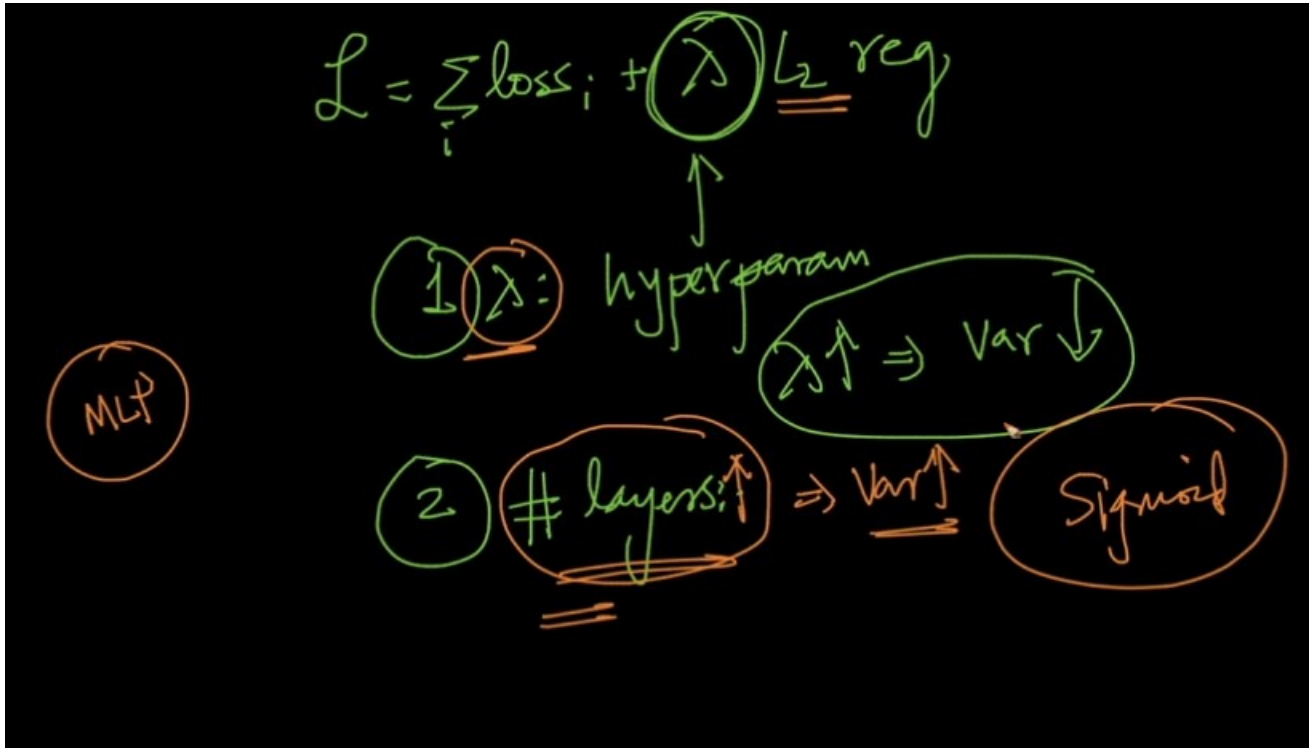 ℒ = Σ_i loss_i + λ L₂ reg
↑
1 λ: hyperparam
λ↑ ⇒ Var ↓
MLP
2 # layers:↑ ⇒ Var↑
Sigmoid